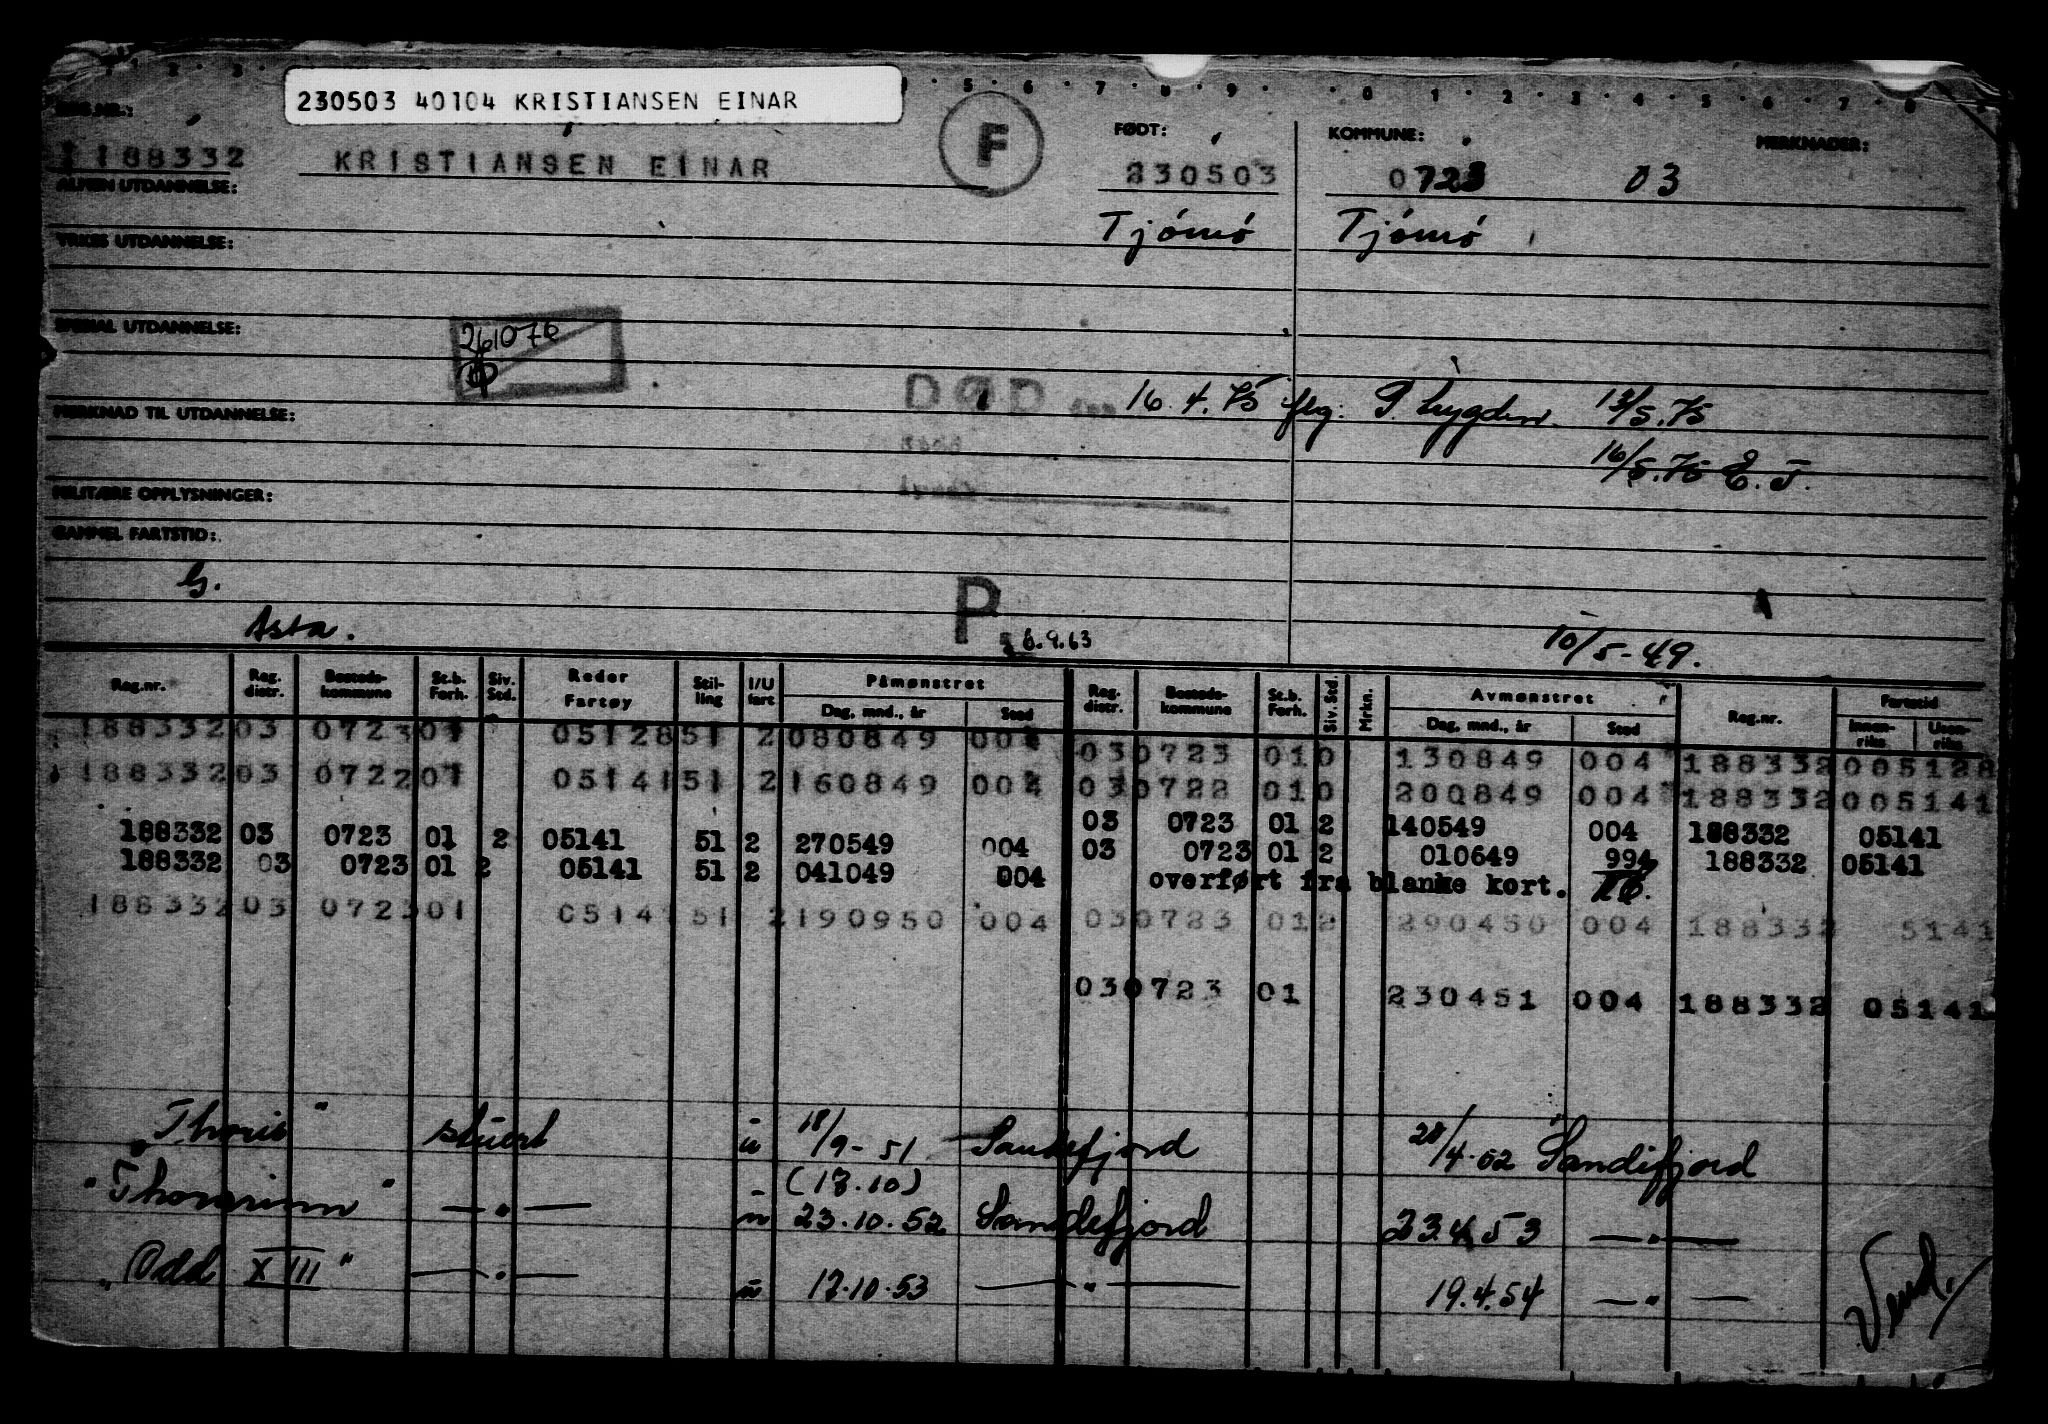 1 2 3 5 6 7 8 9 0 1 2 3 4 5 6 7 8
230503 40104 KRISTIANSEN EINAR
REG.NR.: FØDT: KOMMUNE: MERKNADER:
188332 KRISTIANSEN EINAR F 230503 0723 03
ALMEN UTDANNELSE:
Tjömö Tjömö
YRKES UTDANNELSE:
SPESIAL UTDANNELSE:
261076
DØD 16.4.75 flg. P. Lygden 13/5.75
MERKNAD TIL UTDANNELSE:
16/5.75 E.J.
MILITÆRE OPPLYSNINGER:
GAMMEL FARTSTID:
G.
P 6.9.63
Asta. 10/5-49.
Reg.nr. Reg. distr. Bosteds-kommune St.b. Forh. Siv. Std. Reder Fartøy Stil-ling I/U fart Påmønstret Dag, mnd., år Sted Reg. distr. Bosteds-kommune St.b. Forh. Siv. Std. Mrkn. Avmønstret Dag, mnd., år Sted Reg.nr. Fartstid Innen-riks Uten-riks
188332 03 0723 01 05128 51 2 080849 004 03 0723 01 0 130849 004 188332 005128
188332 03 0722 01 05141 51 2 160849 004 03 0722 01 0 200849 004 188332 005141
188332 03 0723 01 2 05141 51 2 270549 004 03 0723 01 2 140549 004 188332 05141
188332 03 0723 01 2 05141 51 2 041049 004 03 0723 01 2 010649 994 188332 05141
overført fra blanke kort.
188332 03 0723 01 05141 51 2 190950 004 03 0723 01 2 290450 004 188332 5141
03 0723 01 230451 004 188332 05141
"Thoris" stuert u 18/9-51 Sandefjord 28/4-52 Sandefjord
(17.10)
"Thorgrimm" — " — u 23.10.52 Sandefjord 23.4.53 — " —
"Odd XIII" — " — u 17.10.53 — " — 19.4.54 — " —
Vend.